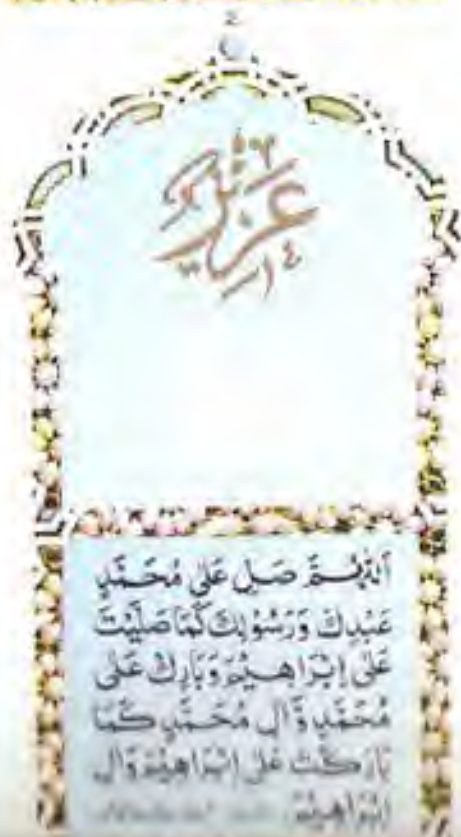 عزيز
اَللّٰهُمَّ صَلِّ عَلٰى مُحَمَّدٍ
عَبْدِكَ وَرَسُوْلِكَ كَمَا صَلَّيْتَ
عَلٰى اِبْرَاهِيْمَ وَبَارِكْ عَلٰى
مُحَمَّدٍ وَّاٰلِ مُحَمَّدٍ كَمَا
بَارَكْتَ عَلٰى اِبْرَاهِيْمَ وَاٰلِ
اِبْرَاهِيْمَ